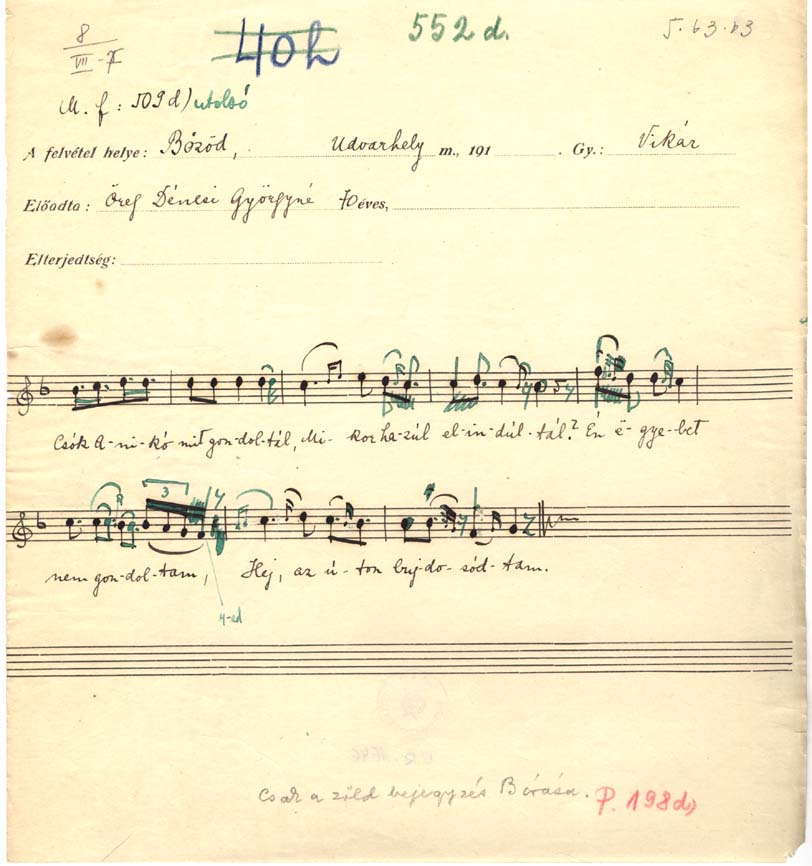 8 552 d. 5.63.63
VII-7 40h
M. f: 509 d) utolsó
A felvétel helye: Bözöd, Udvarhely m., 191 . Gy.: Vikár
Előadta: Öreg Dénesi Györgyné 70 éves,
Elterjedtség:
Csók A-ni-kó mit gon-dol-tál, Mi-kor ha-zúl el-in-dúl-tál? Én ë-gye-bet
3
nem gon-dol-tam, Hej, az ú-ton buj-do-sód-tam.
4-ed
Csak a zöld bejegyzés B írása. P. 198d)